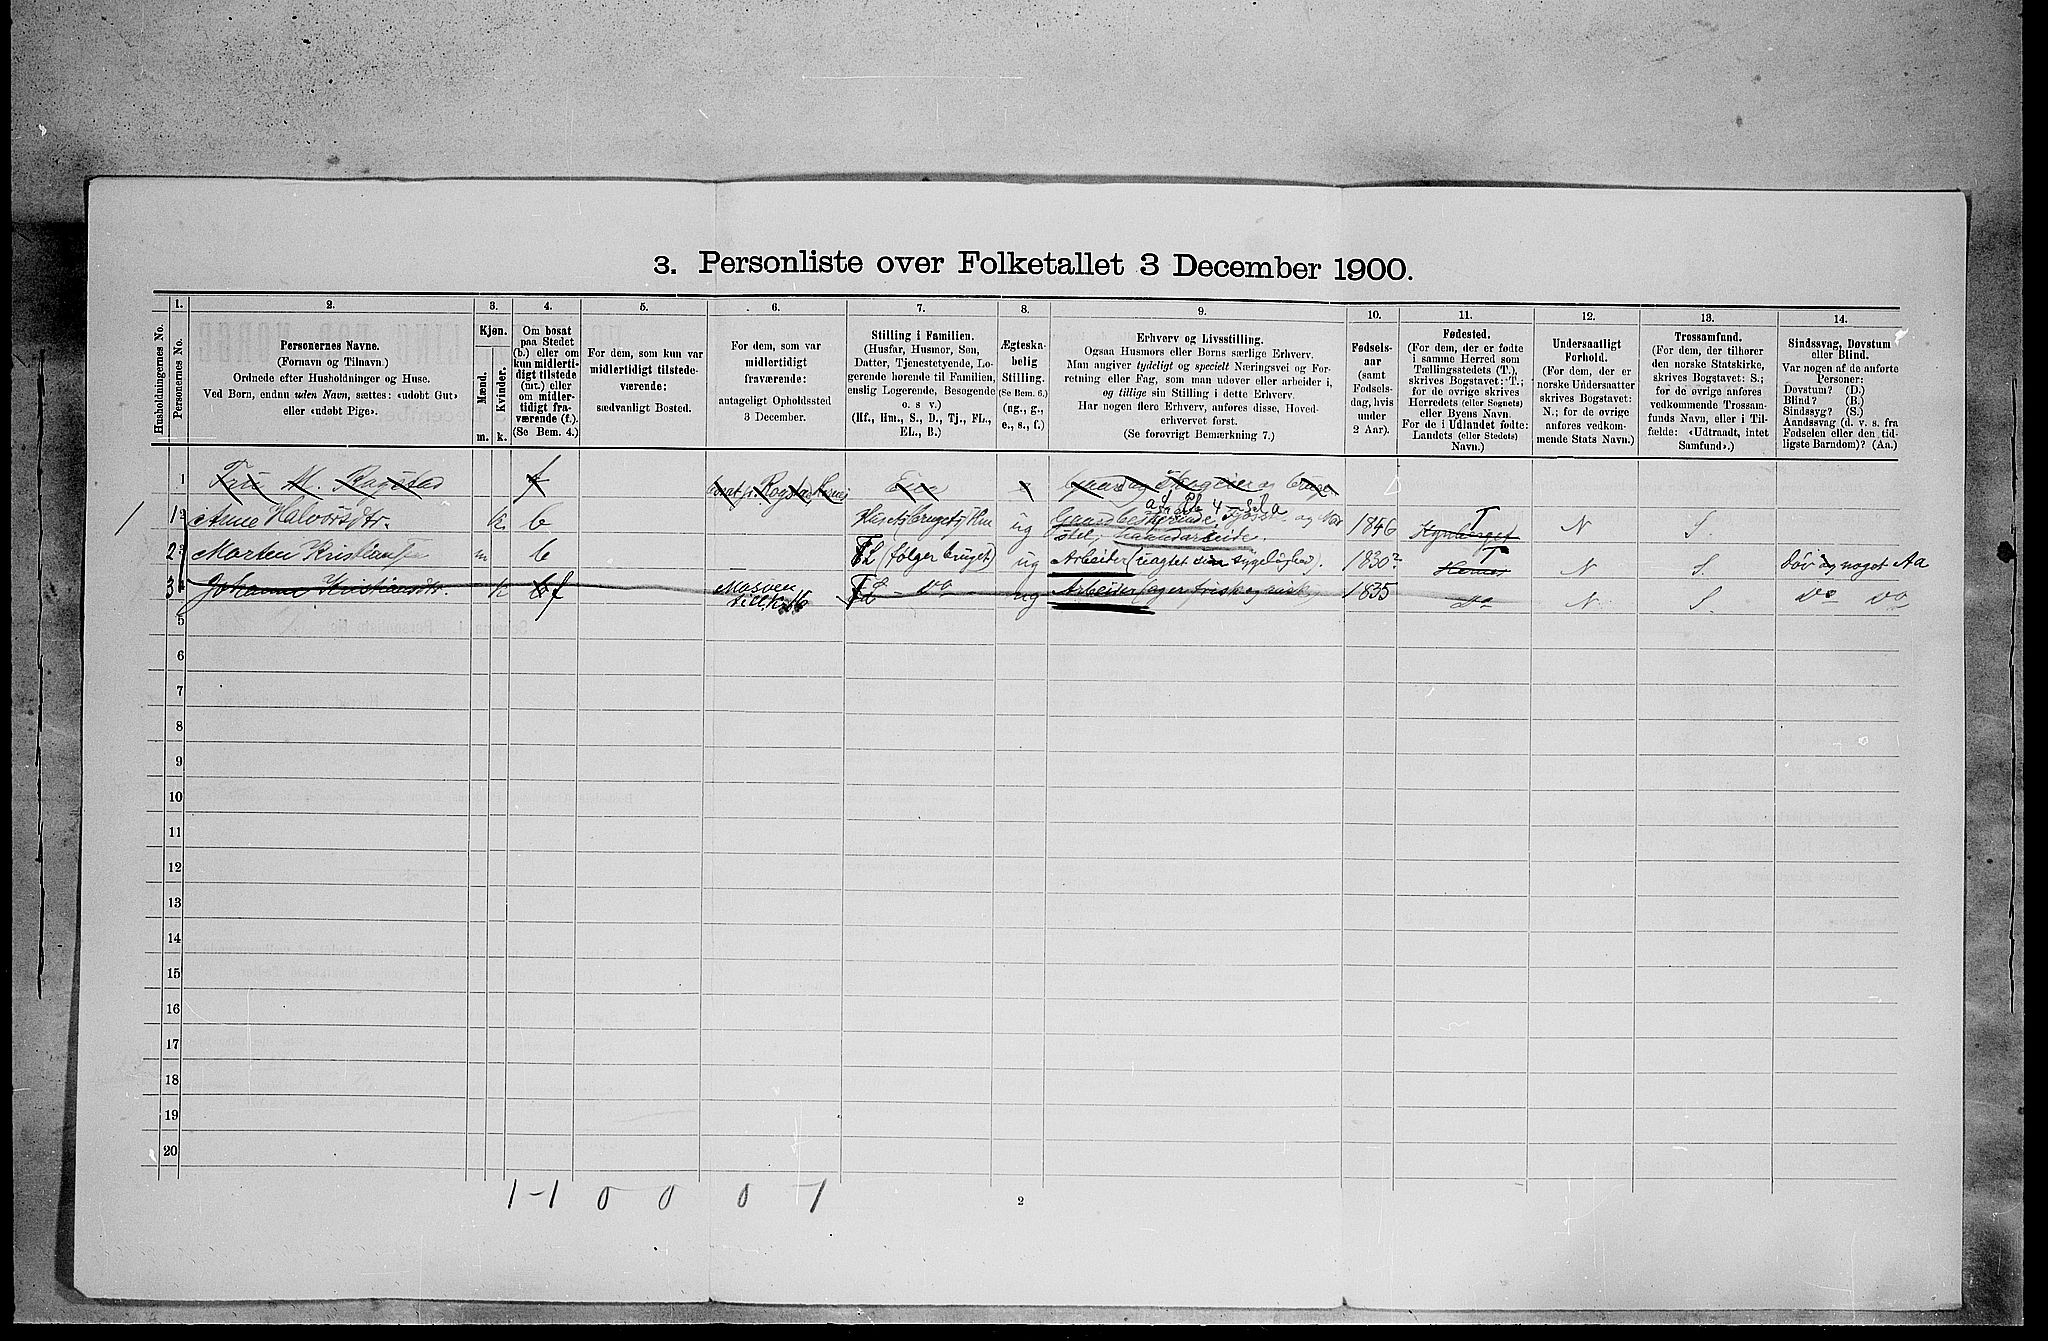 3. Personliste over Folketallet 3 December 1900.
1. 2. 3. 4. 5. 6. 7. 8. 9. 10. 11. 12. 13. 14.
Husholdningernes No.
Personernes No.
Personernes Navne.
(Fornavn og Tilnavn.)
Ordnede efter Husholdninger og Huse.
Ved Børn, endnu uden Navn, sættes: «udøbt Gut»
eller «udøbt Pige».
Kjøn.
Mænd.
Kvinder.
m. k.
Om bosat
paa Stedet
(b.) eller om
kun midlerti-
digt tilstede
(mt.) eller
om midler-
tidigt fra-
værende (f.).
(Se Bem. 4.)
For dem, som kun var
midlertidigt tilstede-
værende:
sædvanligt Bosted.
For dem, som var
midlertidigt
fraværende:
antageligt Opholdssted
3 December.
Stilling i Familien.
(Husfar, Husmor, Søn,
Datter, Tjenestetyende, Lo-
gerende hørende til Familien,
enslig Logerende, Besøgende
o. s v.)
(Hf., Hm., S., D., Tj., FL.,
EL., B.)
Ægteska-
belig
Stilling.
(Se Bem. 6.)
(ug., g.,
e., s., f.)
Erhverv og Livsstilling.
Ogsaa Husmors eller Børns særlige Erhverv.
Man angiver tydeligt og specielt Næringsvei og For-
retning eller Fag, som man udøver eller arbeider i,
og tillige sin Stilling i dette Erhverv.
Har nogen flere Erhverv, anføres disse, Hoved-
erhvervet først.
(Se forøvrigt Bemærkning 7.)
Fødsels-
aar
(samt
Fødsels-
dag, hvis
under
2 Aar).
Fødested.
(For dem, der er fødte
i samme Herred som
Tællingsstedets (T.),
skrives Bogstavet: T.;
for de øvrige skrives
Herredets (eller Sognets)
eller Byens Navn.
For de i Udlandet fødte:
Landets (eller Stedets)
Navn.)
Undersaatligt
Forhold.
(For dem, der er
norske Undersaatter
skrives Bogstavet:
N.; for de øvrige
anføres vedkom-
mende Stats Navn.)
Trossamfund.
(For dem, der tilhører
den norske Statskirke,
skrives Bogstavet: S.;
for de øvrige anføres
vedkommende Trossam-
funds Navn, eller i Til-
fælde: «Udtraadt, intet
Samfund».)
Sindssvag, Døvstum
eller Blind.
Var nogen af de anførte
Personer:
Døvstum? (D.)
Blind? (B.)
Sindssyg? (S.)
Aandssvag (d. v. s. fra
Fødselen eller den tid-
ligste Barndom)? (Aa.)
1 Fru M. Rogstad f Eier
1 1 Anne Halvorsdtr. k b Husets bruget; Hm ug Gaardbestyrerinde, 1846 T N S.
haandarbeide.
2 Morten Kristians m b FL (følger bruget) ug Arbeider (uagtet sin sygelighed). 1830 Hernes T N S. døv og noget Aa
3 Johanne Kristiansdtr. k b f FL do ug Arbeider 1835 do N S. do do
5
6
7
8
9
10
11
12
13
14
15
16
17
18
19
20
1-1 0 0 0 -1
2